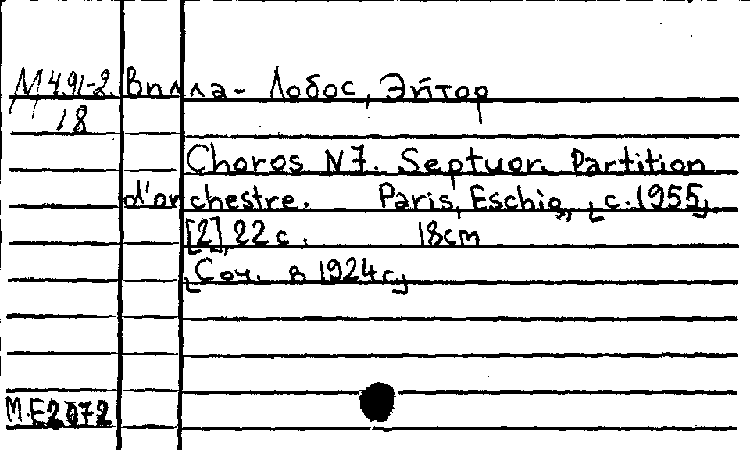 М 4.91-2 Вилла-Лобос, Эйтор
18
Choros N7. Septuor. Partition
d'orchestre. Paris, Eschig, [c.1955].
[2], 22 с. 18cm
[Соч. в 1924г.]
М.Е2072